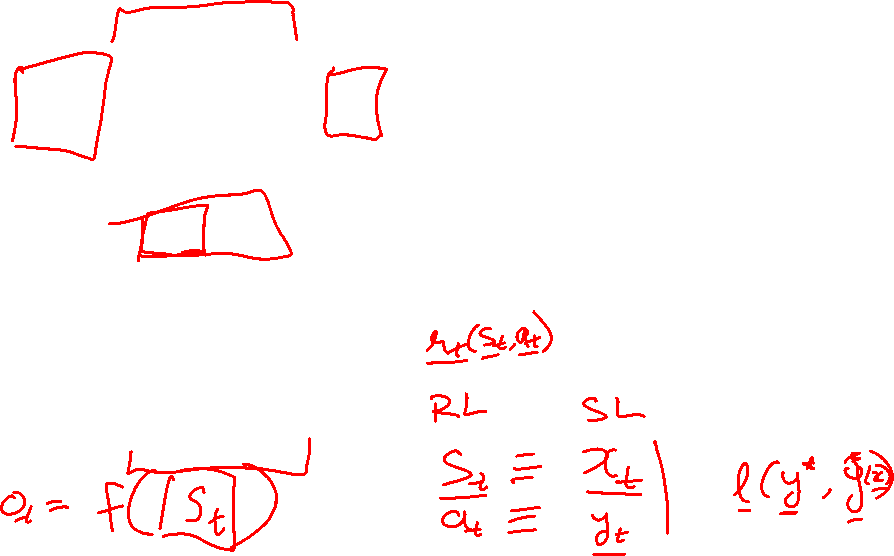 r_t(s_t, a_t)
RL SL
s_t ≡ x_t
a_t ≡ y_t
l(y*, ŷ(x))
o_t = f(s_t)